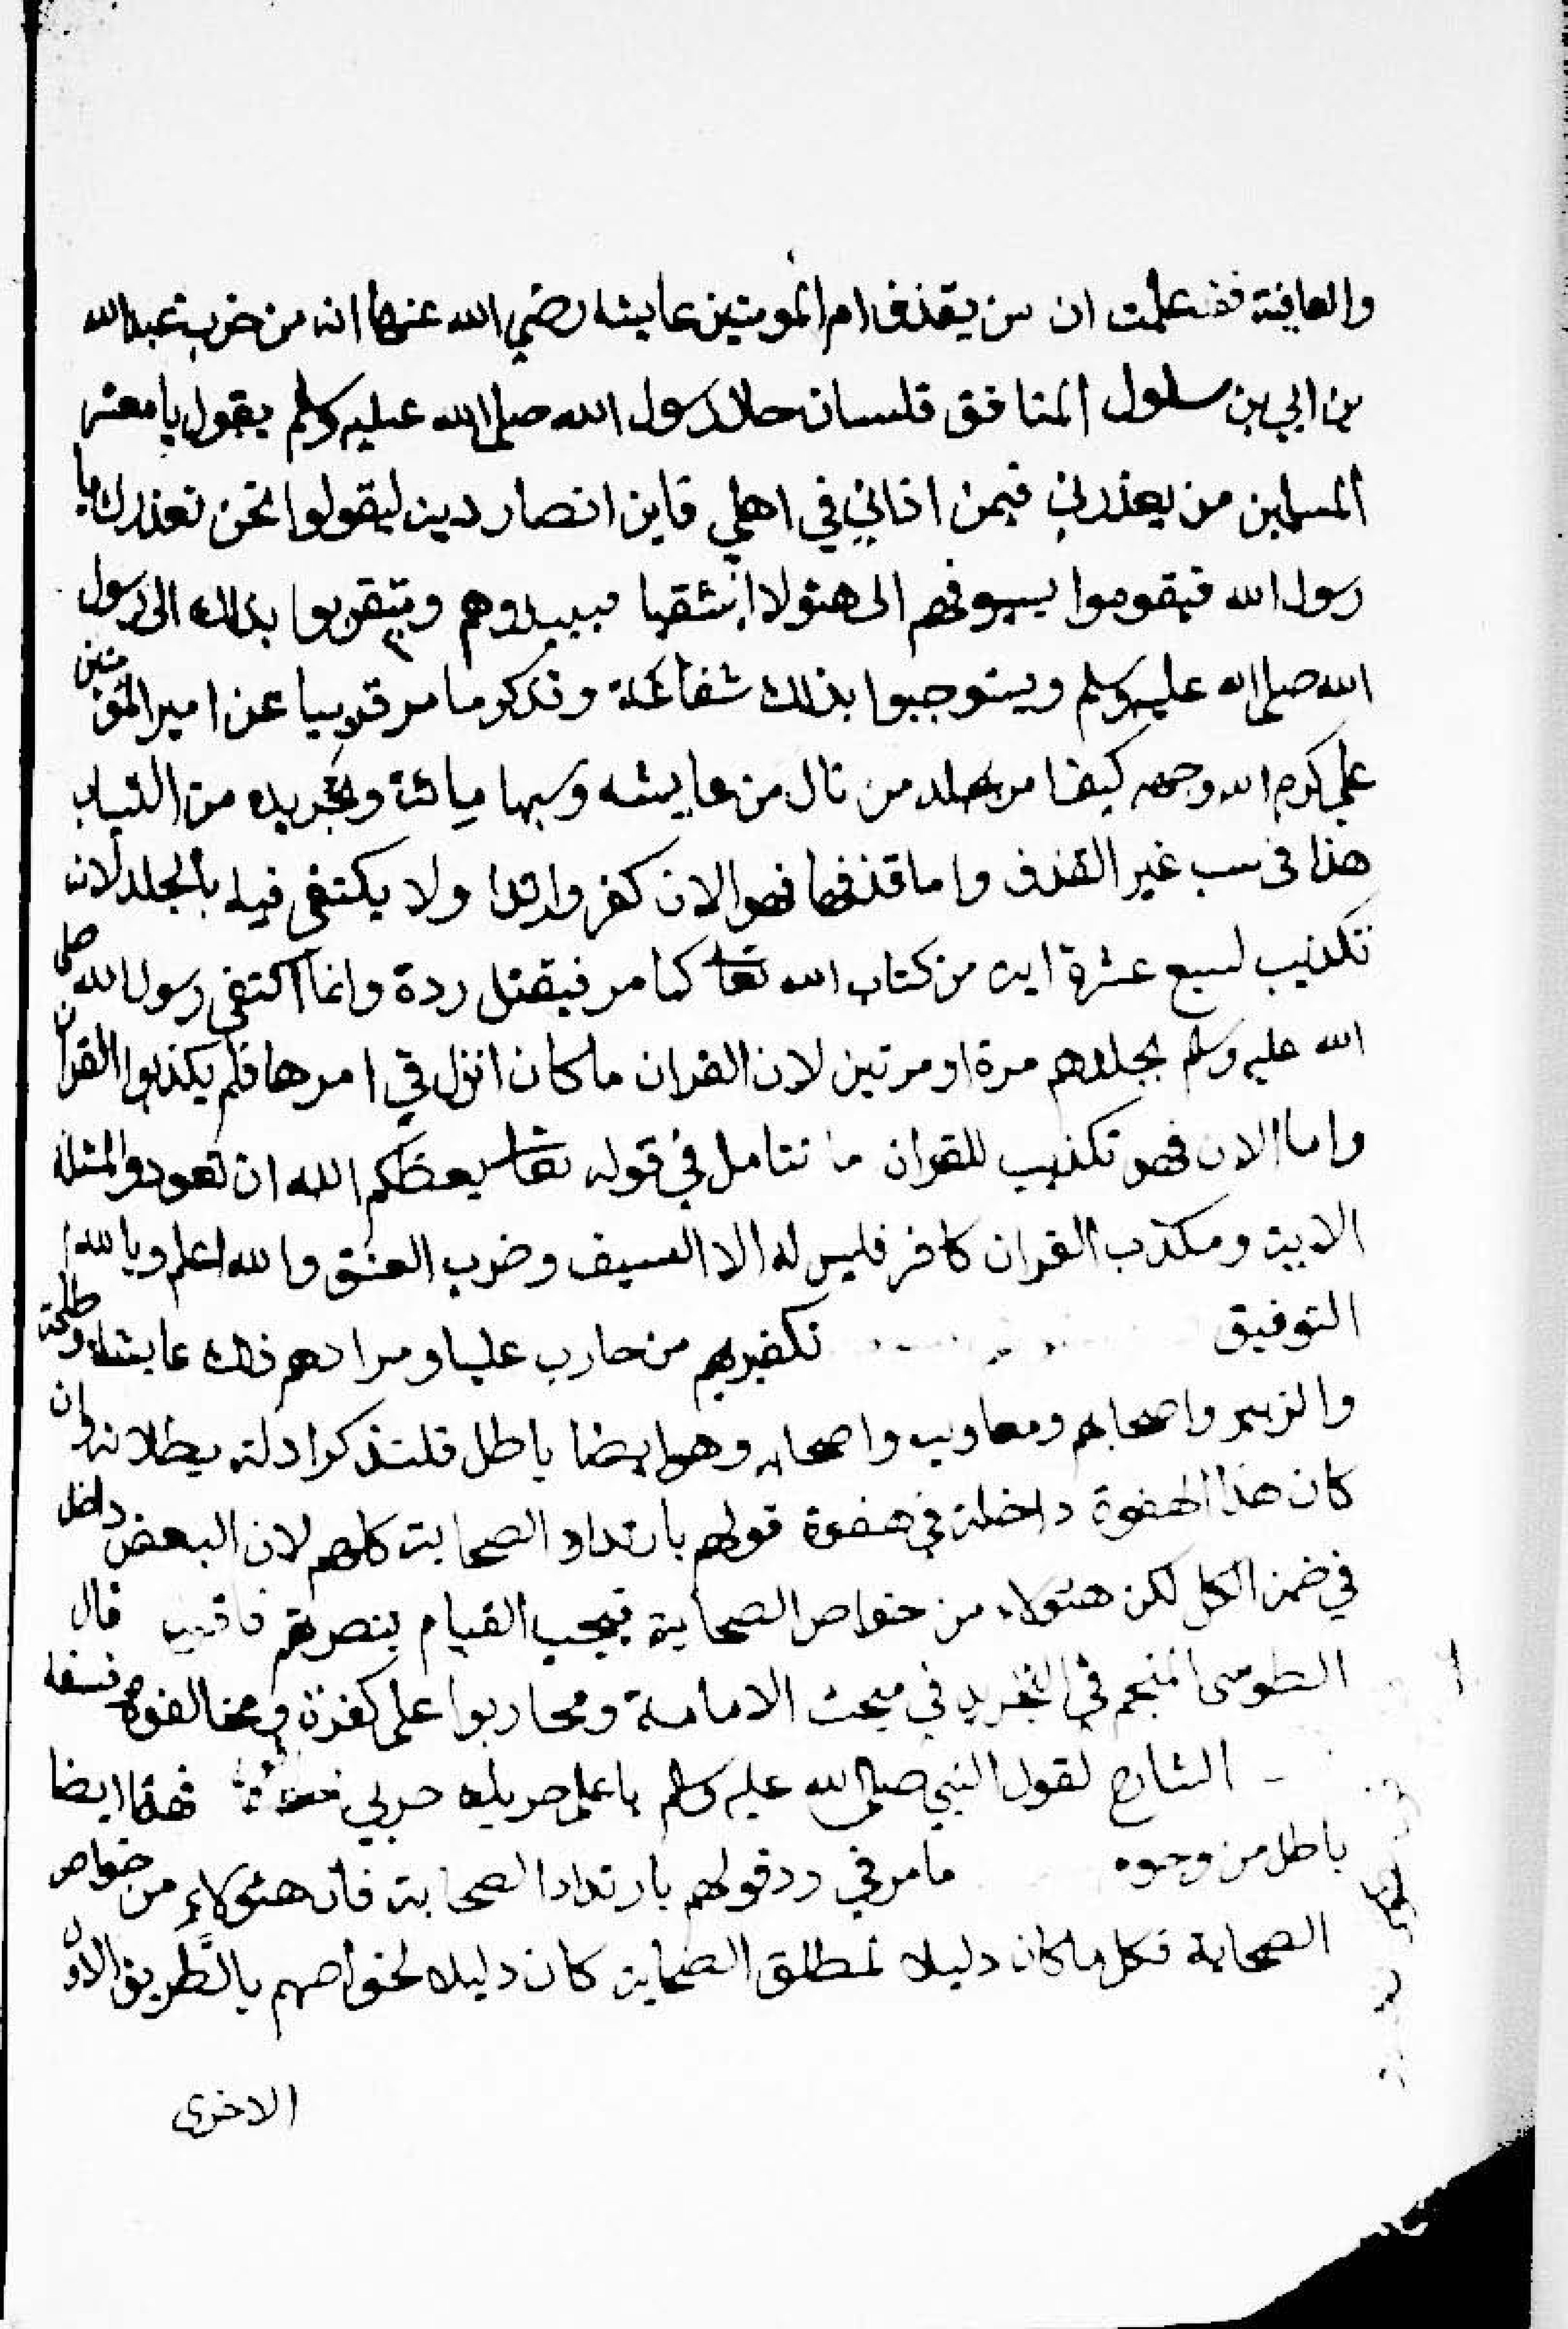 والعافية فقد علمت ان من يقذف ام المومنين عايشه رضي الله عنها انه من حزب عبد الله
بن ابي بن سلول المنافق قلسان حال رسول الله صلى الله عليه وسلم يقول يا معشر
المسلمين من يعذرني فيمن اذاني في اهلي فاين انصار دينه ليقولوا نحن نعذرك يا
رسول الله فيقوموا بسيوفهم الى هئولا اشقيا فيبيدوهم ويتقربوا بذلك الى رسول
الله صلى الله عليه وسلم ويستوجبوا بذلك شفاعته وتذكر ما مر قريبا عن امير المؤمنين
علي كرم الله وجهه كيف امر بجلد من نال من عايشه وسبها مائة وتجريده من الثياب
هذا في سب غير القذف واما قذفها فهو الان كفر وارتداد ولا يكتفى فيه بالجلد لانه
تكذيب لسبع عشرة ايه من كتاب الله تعالى كما مر فيقتل ردة وانما اكتفى رسول الله صلى
الله عليه وسلم بجلدهم مرة او مرتين لان القران ما كان انزل في امرها فلم يكذبوا القران
واما الان فهو تكذيب للقران ما نتامل في قوله تعالى يعظكم الله ان تعودوا لمثله
الاية ومكذب القران كافر فليس له الا السيف وضرب العنق والله اعلم وبالله
التوفيق تكفيرهم من حارب عليا ومرادهم ذلك عايشه وطلحة
والزبير واصحابهم ومعاويه واصحابه وهو ايضا باطل فلنذكر ادلة بطلانه وان
كان هذا الهفوة داخلة في هفوة قولهم بارتداد الصحابة كلهم لان البعض داخل
في ضمن الكل لكن هئولاء من خواص الصحابة فيجب القيام بنصرتهم قال
الطوسى المنجم في التجريد في مبحث الامامة ومحاربوا علي كفرة ومخالفوه فسقه
الشارح لقول النبي صلى الله عليه وسلم يا علي حربك حربي فهذا ايضا
باطل من وجوه ما مر في رد قولهم بارتداد الصحابة فان هئولاء من خواص
الصحابة فكل ما كان دليلا لمطلق الصحابة كان دليلا لخواصهم بالطريق الاول
الاخرى